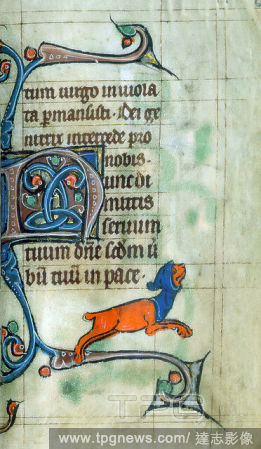 tum uirgo inuiola
ta pmansisti · Dei ge
nitrix intercede pro
nobis ·
Nunc di
mittis
seruum
tuum dñe scdm ũ
bũ tuũ in pace ·
TPG
www.tpgnews.com/ 達志影像